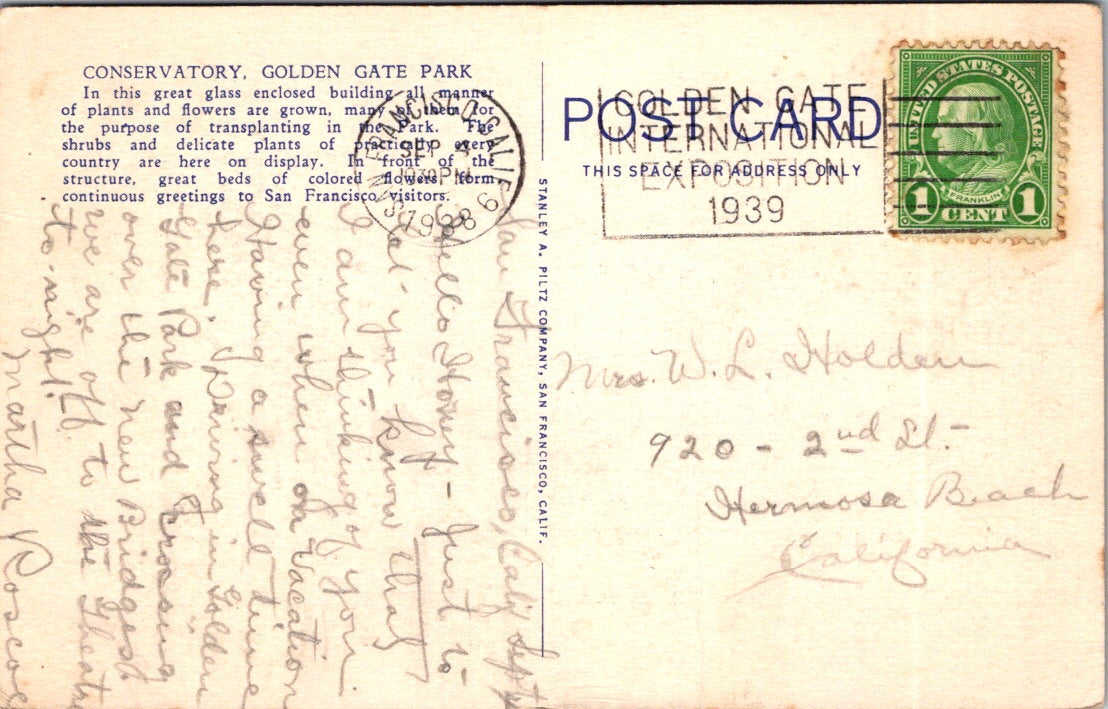 CONSERVATORY, GOLDEN GATE PARK
In this great glass enclosed building all manner
of plants and flowers are grown, many of them for
the purpose of transplanting in the Park. The
shrubs and delicate plants of practically every
country are here on display. In front of the
structure, great beds of colored flowers form
continuous greetings to San Francisco visitors.
SAN FRANCISCO, CALIF.
SEP
1030 PM
1938
6
GOLDEN GATE
INTERNATIONAL
EXPOSITION
1939
POST CARD
THIS SPACE FOR ADDRESS ONLY
UNITED STATES POSTAGE
FRANKLIN
1 CENT 1
STANLEY A. PILTZ COMPANY, SAN FRANCISCO, CALIF.
San Francisco, Calif Sept
Hello - Just to
let you know that
I am thinking of you
even when on Vacation
Having a swell time
here, Driving in Golden
Gate Park and crossing
over the new Bridges
we are off to the Theatre
to-night.
Martha Roscoe
Mrs. W. L. Holden
920 - 2nd St.
Hermosa Beach
California